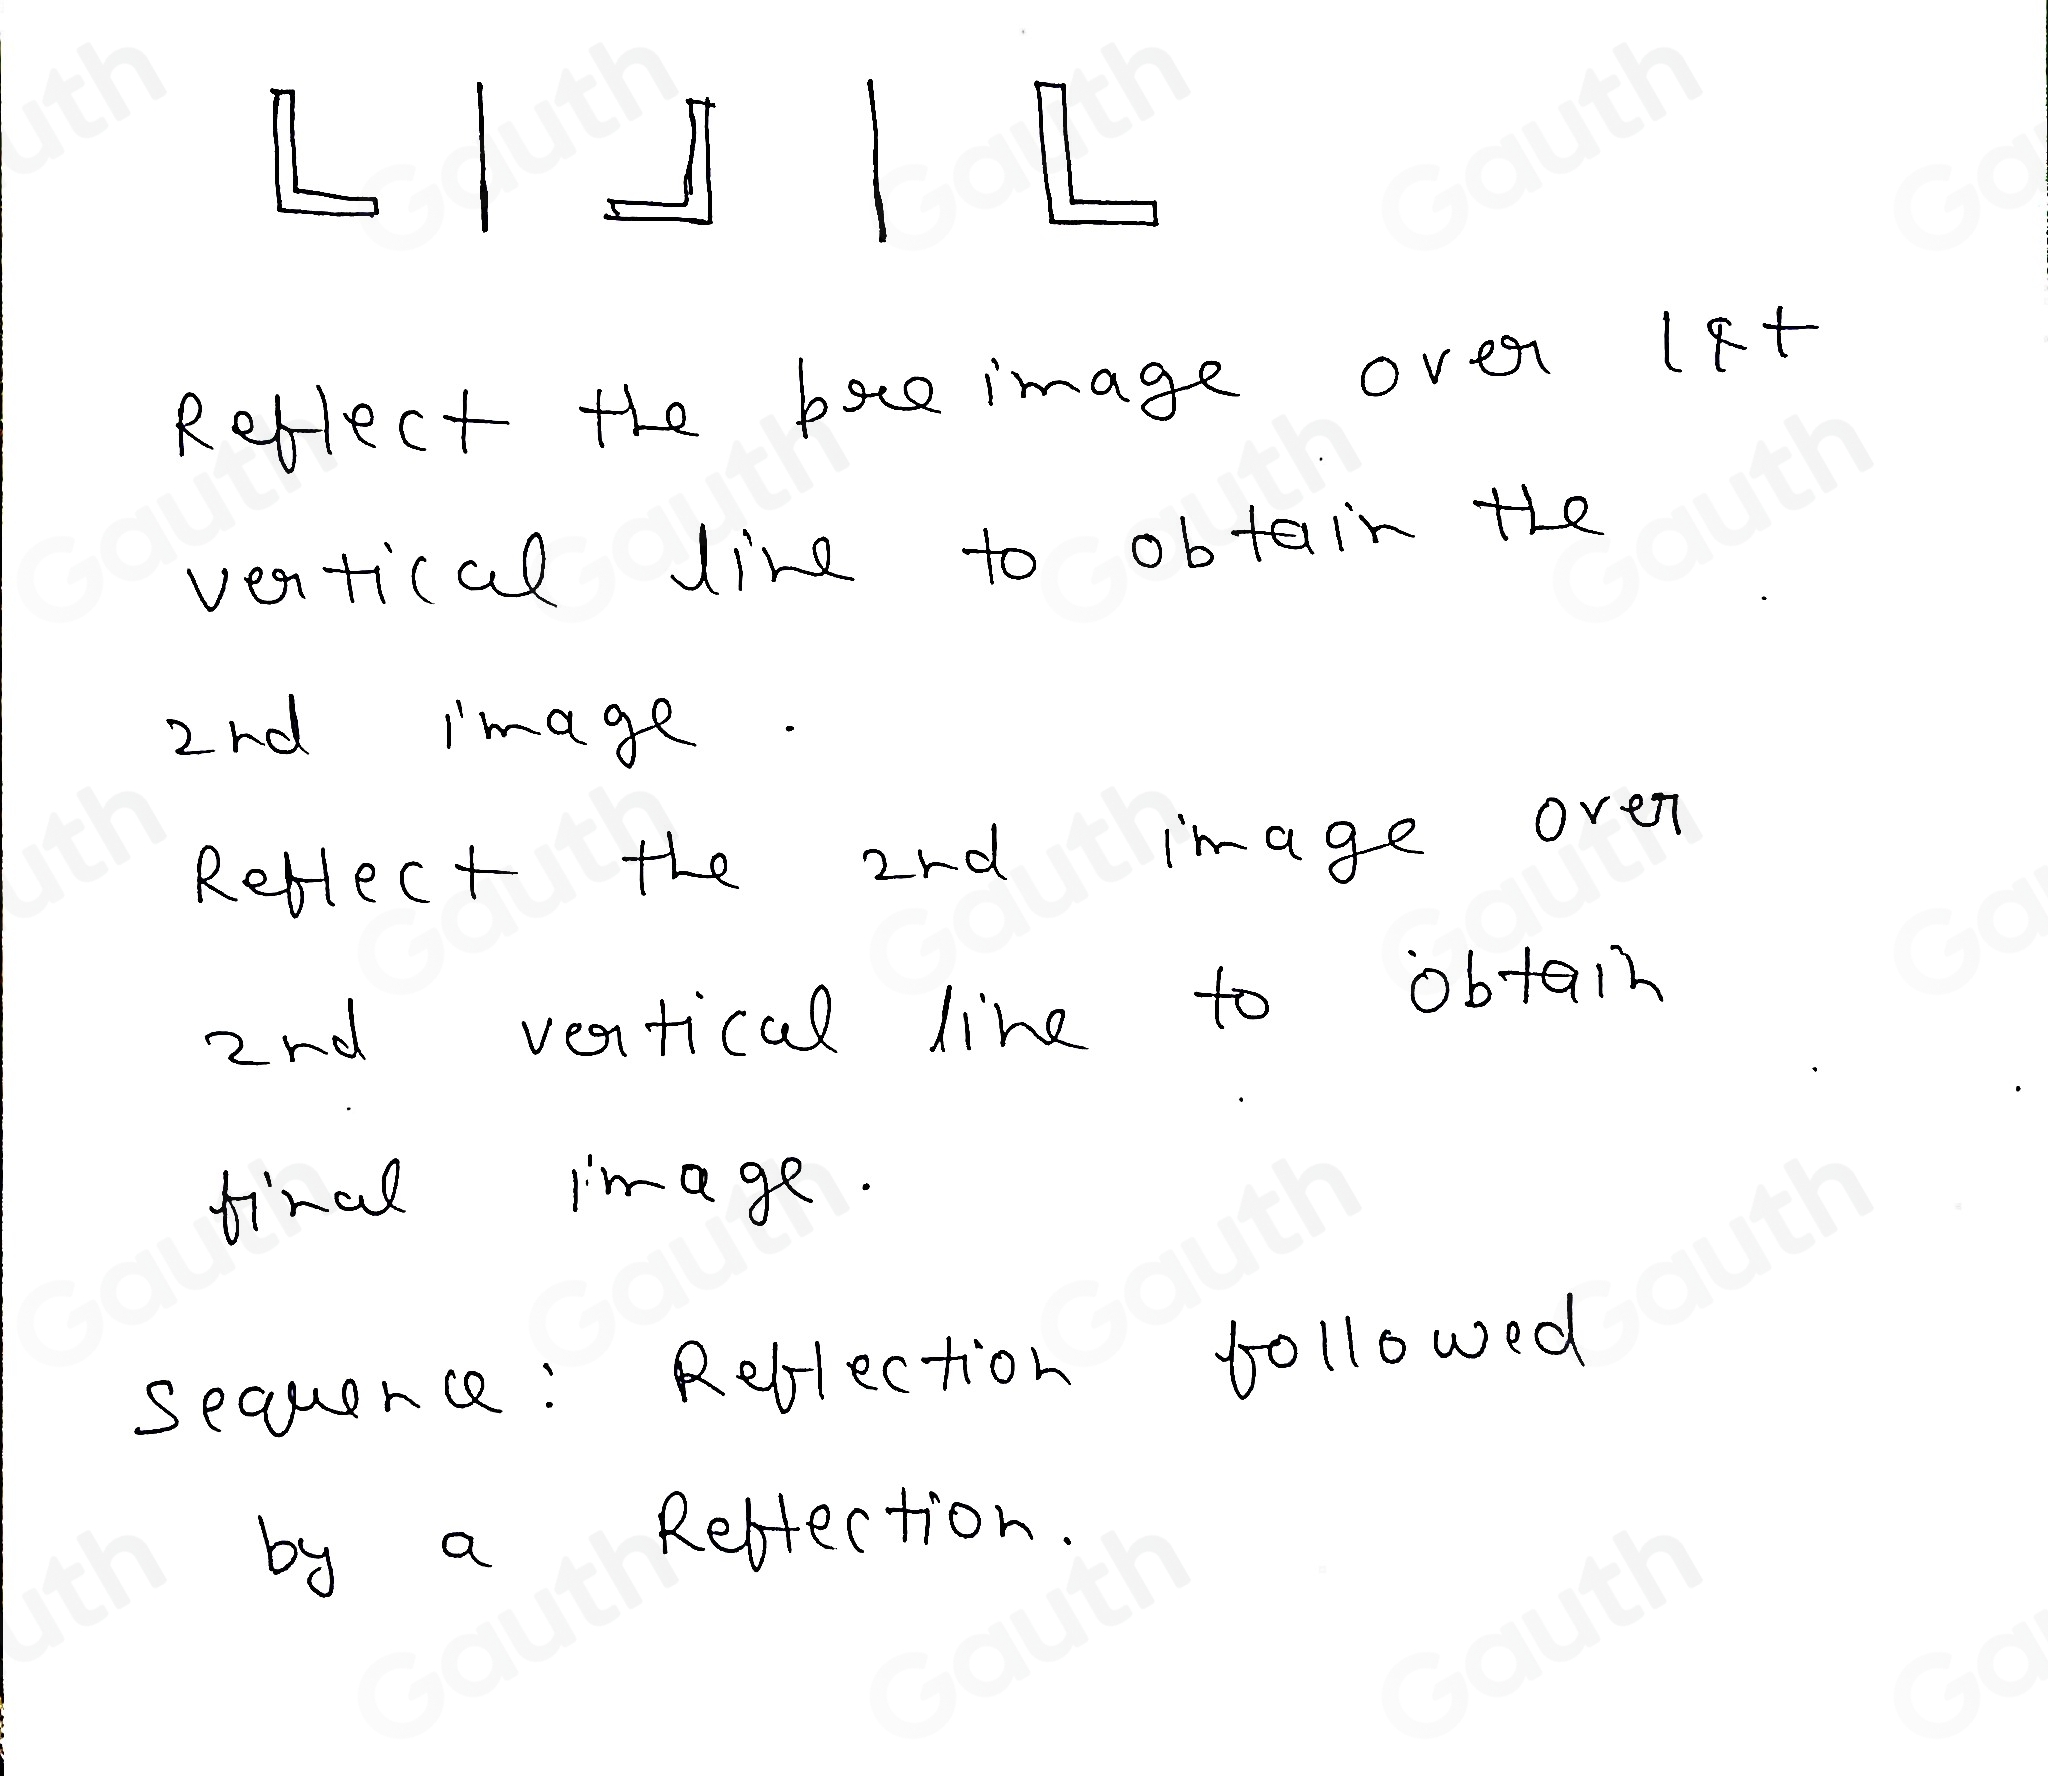 Reflect the preimage over 1st
vertical line to obtain the
2nd image.
Reflect the 2nd image over
2nd vertical line to obtain
final image.
Sequence: Reflection followed
by a Reflection.